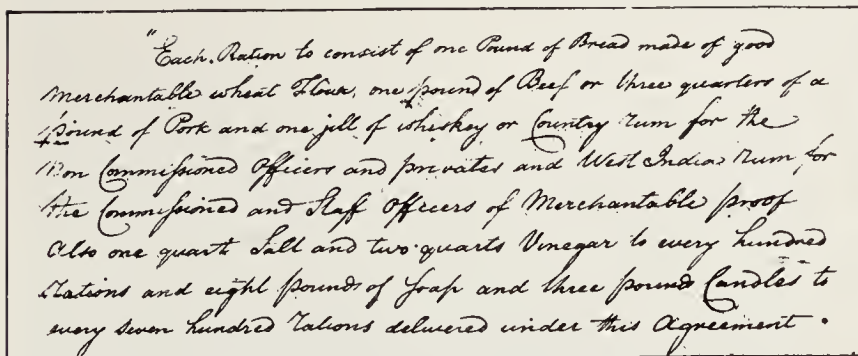 "Each Ration to consist of one Pound of Bread made of good
Merchantable wheat Flour, one pound of Beef or three quarters of a
pound of Pork and one jill of whiskey or Country rum for the
Non Commissioned Officers and privates and West India rum for
the Commissioned and Staff Officers of Merchantable proof
Also one quart Salt and two quarts Vinegar to every hundred
rations and eight pounds of Soap and three pounds Candles to
every seven hundred rations delivered under this Agreement.